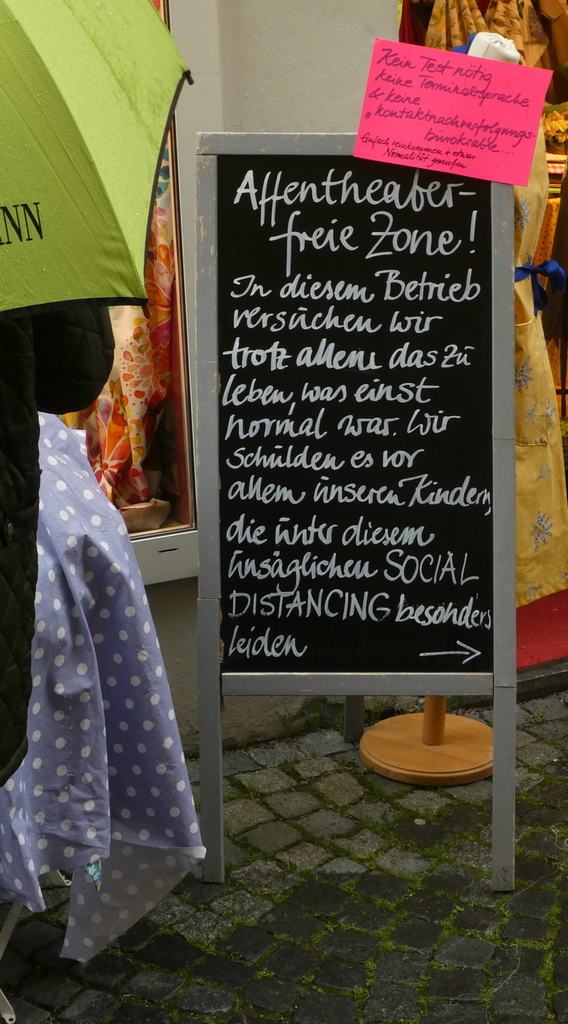 NN
Kein Test nötig
keine Terminabsprache
& keine
"kontaktnachverfolgungs-
bürokratie....
Einfach reinkommen + etwas
Normalität genießen
Affentheater-
freie Zone!
In diesem Betrieb
versuchen wir
trotz allem das zu
leben, was einst
normal war. Wir
schulden es vor
allem unseren Kindern,
die unter diesem
unsäglichen SOCIAL
DISTANCING besonders
leiden